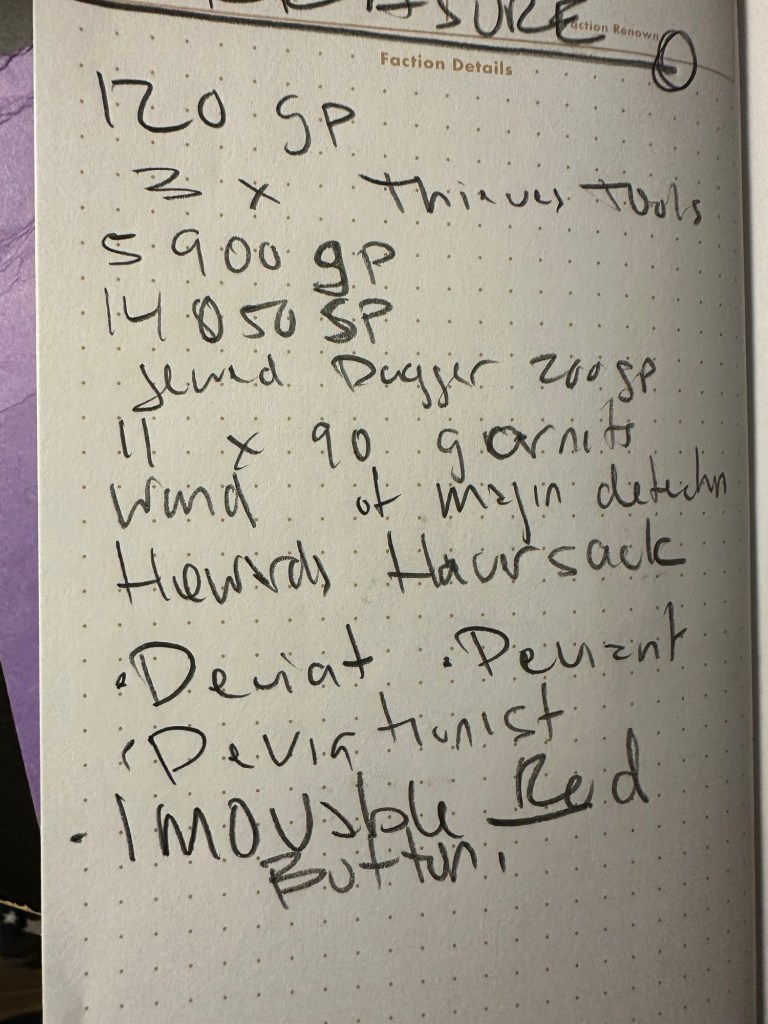 TREASURE
Faction Renown
Faction Details
120 gp
3 x Thieves Tools
5900 gp
14050 SP
Jewed Dagger 200gp
11 x 90 garnits
Wand of magin detechn
Hewards Haversack
• Deviat • Deviant
• Deviationist
• Imovable Red
Button.